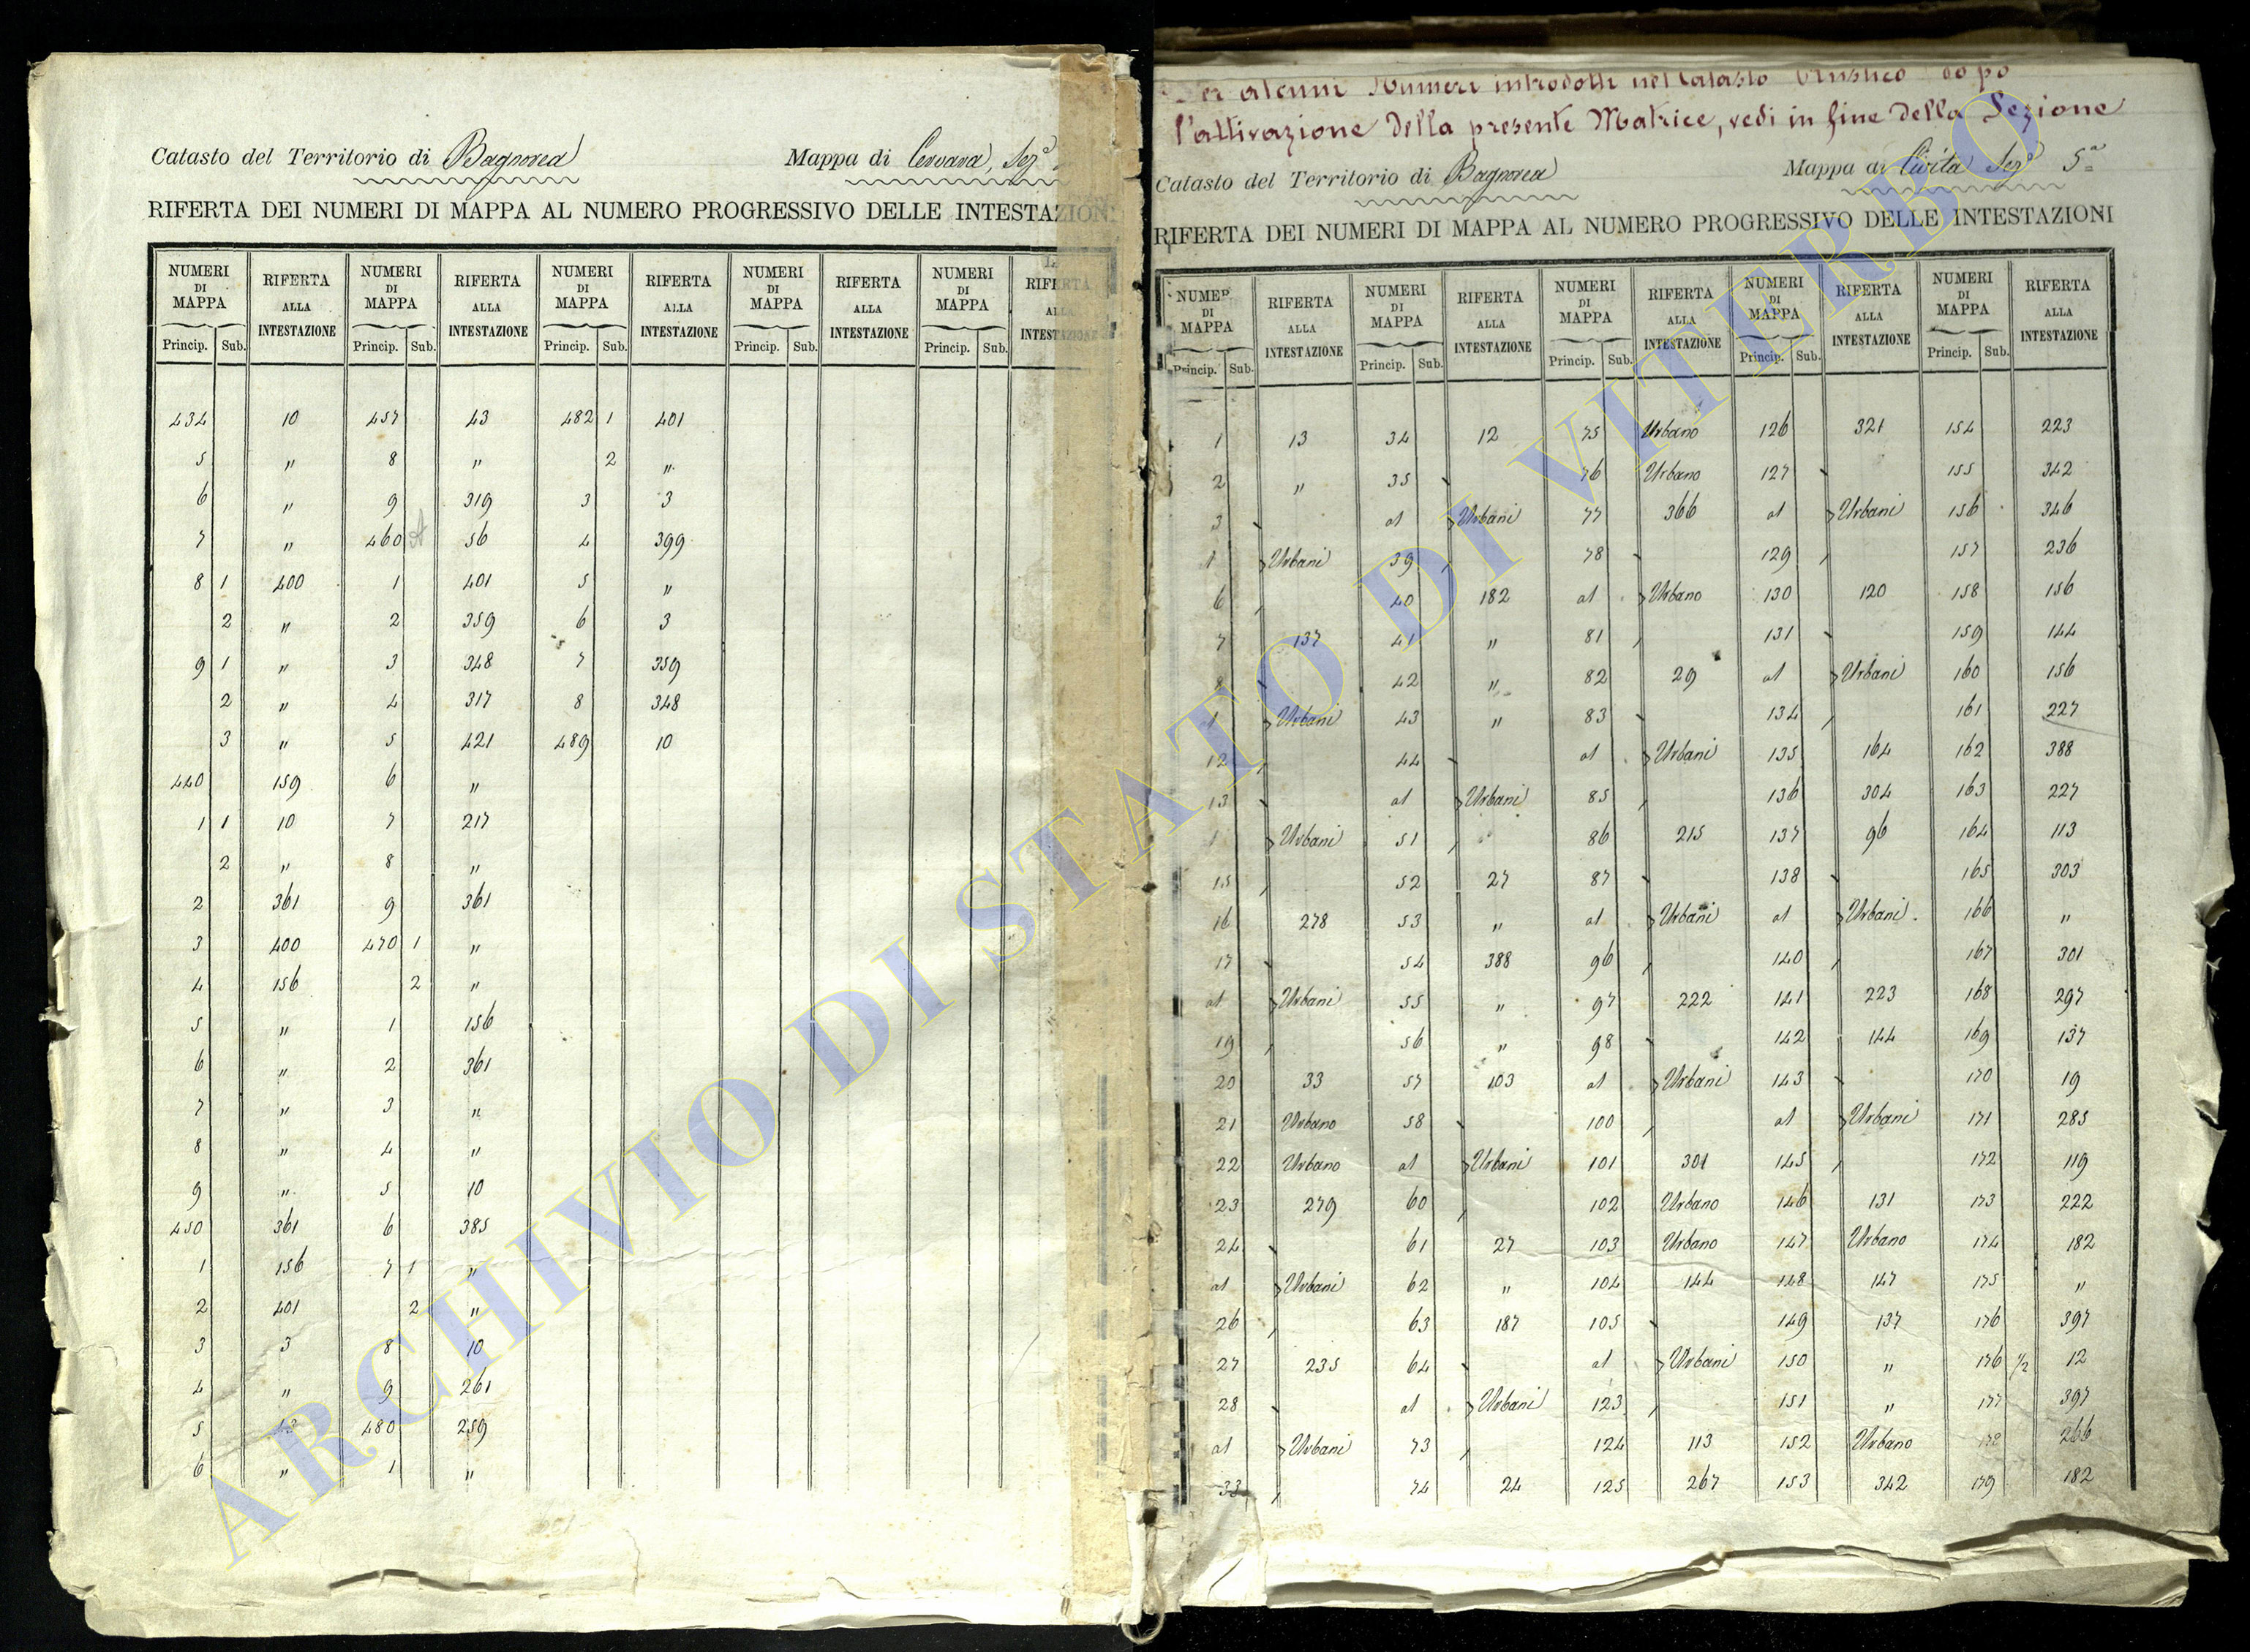 Catasto del Territorio di Bagnorea Mappa di Cervara, Sez.e
RIFERTA DEI NUMERI DI MAPPA AL NUMERO PROGRESSIVO DELLE INTESTAZION
NUMERI DI MAPPA RIFERTA ALLA INTESTAZIONE NUMERI DI MAPPA RIFERTA ALLA INTESTAZIONE NUMERI DI MAPPA RIFERTA ALLA INTESTAZIONE NUMERI DI MAPPA RIFERTA ALLA INTESTAZIONE NUMERI DI MAPPA RIFERTA ALLA INTESTAZIONE
Princip. Sub. Princip. Sub. Princip. Sub. Princip. Sub. Princip. Sub.
434 10 457 43 482 1 401
5 " 8 " 2 "
6 " 9 319 3 3
7 " 460 A 56 4 399
8 1 400 1 401 5 "
2 " 2 359 6 3
9 1 " 3 348 7 359
2 " 4 317 8 348
3 " 5 421 489 10
440 159 6 "
1 1 10 7 217
2 " 8 "
2 361 9 361
3 400 470 1 "
4 156 2 "
5 " 1 156
6 " 2 361
7 " 3 "
8 " 4 "
9 " 5 10
450 361 6 385
1 156 7 1 "
2 401 2 "
3 3 8 10
4 " 9 261
5 43 480 259
6 " 1 "
Per alcuni Numeri introdotti nel Catasto Urustico dopo
l'attivazione della presente Matrice, vedi in fine della Sezione
Catasto del Territorio di Bagnorea Mappa di Civita Sez.e 5a
RIFERTA DEI NUMERI DI MAPPA AL NUMERO PROGRESSIVO DELLE INTESTAZIONI
NUMERI DI MAPPA RIFERTA ALLA INTESTAZIONE NUMERI DI MAPPA RIFERTA ALLA INTESTAZIONE NUMERI DI MAPPA RIFERTA ALLA INTESTAZIONE NUMERI DI MAPPA RIFERTA ALLA INTESTAZIONE NUMERI DI MAPPA RIFERTA ALLA INTESTAZIONE
Princip. Sub. Princip. Sub. Princip. Sub. Princip. Sub. Princip. Sub.
1 13 34 12 75 Urbano 126 321 154 223
2 " 35 76 Urbano 127 155 342
3 al Urbani 77 366 al Urbani 156 346
al Urbani 39 78 129 157 236
6 40 182 al Urbano 130 120 158 156
7 137 41 " 81 131 159 144
8 42 " 82 29 al Urbani 160 156
al Urbani 43 " 83 134 161 227
12 44 al Urbani 135 164 162 388
13 al Urbani 85 136 304 163 227
al Urbani 51 86 215 137 96 164 113
15 52 27 87 138 165 303
16 278 53 " al Urbani al Urbani 166 "
17 54 388 96 140 167 301
al Urbani 55 " 97 222 141 223 168 297
19 56 " 98 142 144 169 137
20 33 57 403 al Urbani 143 170 19
21 Urbano 58 100 al Urbani 171 285
22 Urbano al Urbani 101 301 145 172 119
23 279 60 102 Urbano 146 131 173 222
24 61 27 103 Urbano 147 Urbano 174 182
al Urbani 62 " 104 144 148 147 175 "
26 63 187 105 149 137 176 397
27 235 64 al Urbani 150 " 176 1/2 12
28 al Urbani 123 151 " 177 397
al Urbani 73 124 113 152 Urbano 178 266
33 74 24 125 267 153 342 179 182
ARCHIVIO DI STATO DI VITERBO